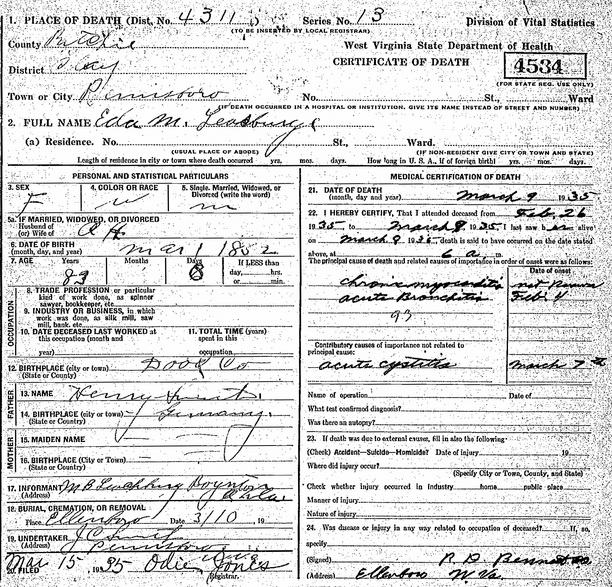 1. PLACE OF DEATH (Dist. No. 4311 ) Series No. 13 Division of Vital Statistics
(TO BE INSERTED BY LOCAL REGISTRAR)
County Ritchie West Virginia State Department of Health
District CERTIFICATE OF DEATH 4534
(FOR STATE REG. USE ONLY)
Town or City Pennsboro No. St., Ward
(IF DEATH OCCURRED IN A HOSPITAL OR INSTITUTION, GIVE ITS NAME INSTEAD OF STREET AND NUMBER)
2. FULL NAME Eda M.
(a) Residence. No. St., Ward.
(USUAL PLACE OF ABODE) (IF NON-RESIDENT GIVE CITY OR TOWN AND STATE)
Length of residence in city or town where death occurred yrs. mos. days. How long in U. S. A., if of foreign birth? yrs. mos. days.
PERSONAL AND STATISTICAL PARTICULARS
3. SEX 4. COLOR OR RACE 5. Single, Married, Widowed, or Divorced (write the word)
F W M
5a. IF MARRIED, WIDOWED, OR DIVORCED
Husband of
(or) Wife of
6. DATE OF BIRTH
(month, day, and year) Mar 1 1852
7. AGE Years Months Days If LESS than
83 8 day, hrs.
or min.
OCCUPATION
8. TRADE, PROFESSION or particular
kind of work done, as spinner
sawyer, bookkeeper, etc.
9. INDUSTRY OR BUSINESS, in which
work was done, as silk mill, saw
mill, bank, etc.
10. DATE DECEASED LAST WORKED at 11. TOTAL TIME (years)
this occupation (month and spent in this
year) occupation
12. BIRTHPLACE (city or town) Co
(State or County)
FATHER
13. NAME Henry
14. BIRTHPLACE (city or town) Germany
(State or County)
MOTHER
15. MAIDEN NAME
16. BIRTHPLACE (City or Town)
(State or County)
17. INFORMANT M B Boynton
(Address) Okla
18. BURIAL, CREMATION, OR REMOVAL
Place Ellenboro Date 3/10 19
19. UNDERTAKER J C
(Address) Pennsboro W. Va.
20. FILED Mar 15, 1935 Odie Jones
Registrar.
MEDICAL CERTIFICATION OF DEATH
21. DATE OF DEATH
(month, day and year) March 9 1935
22. I HEREBY CERTIFY, That I attended deceased from Feb. 26
1935 to March 8 1935. I last saw her alive
on March 8 1935, death is said to have occurred on the date stated
above, at 6 a. m.
The principal cause of death and related causes of importance in order of onset were as follows:
Date of onset
chronic myocarditis not known
acute Bronchitis Feb. 4
93
Contributory causes of importance not related to
principal cause:
acute cystitis March 7th
Name of operation Date of
What test confirmed diagnosis?
Was there an autopsy?
23. If death was due to external causes, fill in also the following:
(Check) Accident—Suicide—Homicide? Date of injury 19
Where did injury occur?
(Specify City or Town, County, and State)
Check whether injury occurred in industry home public place
Manner of injury
Nature of injury
24. Was disease or injury in any way related to occupation of deceased? If so,
specify
(Signed) R. D. Bennett
(Address) Ellenboro W. Va.